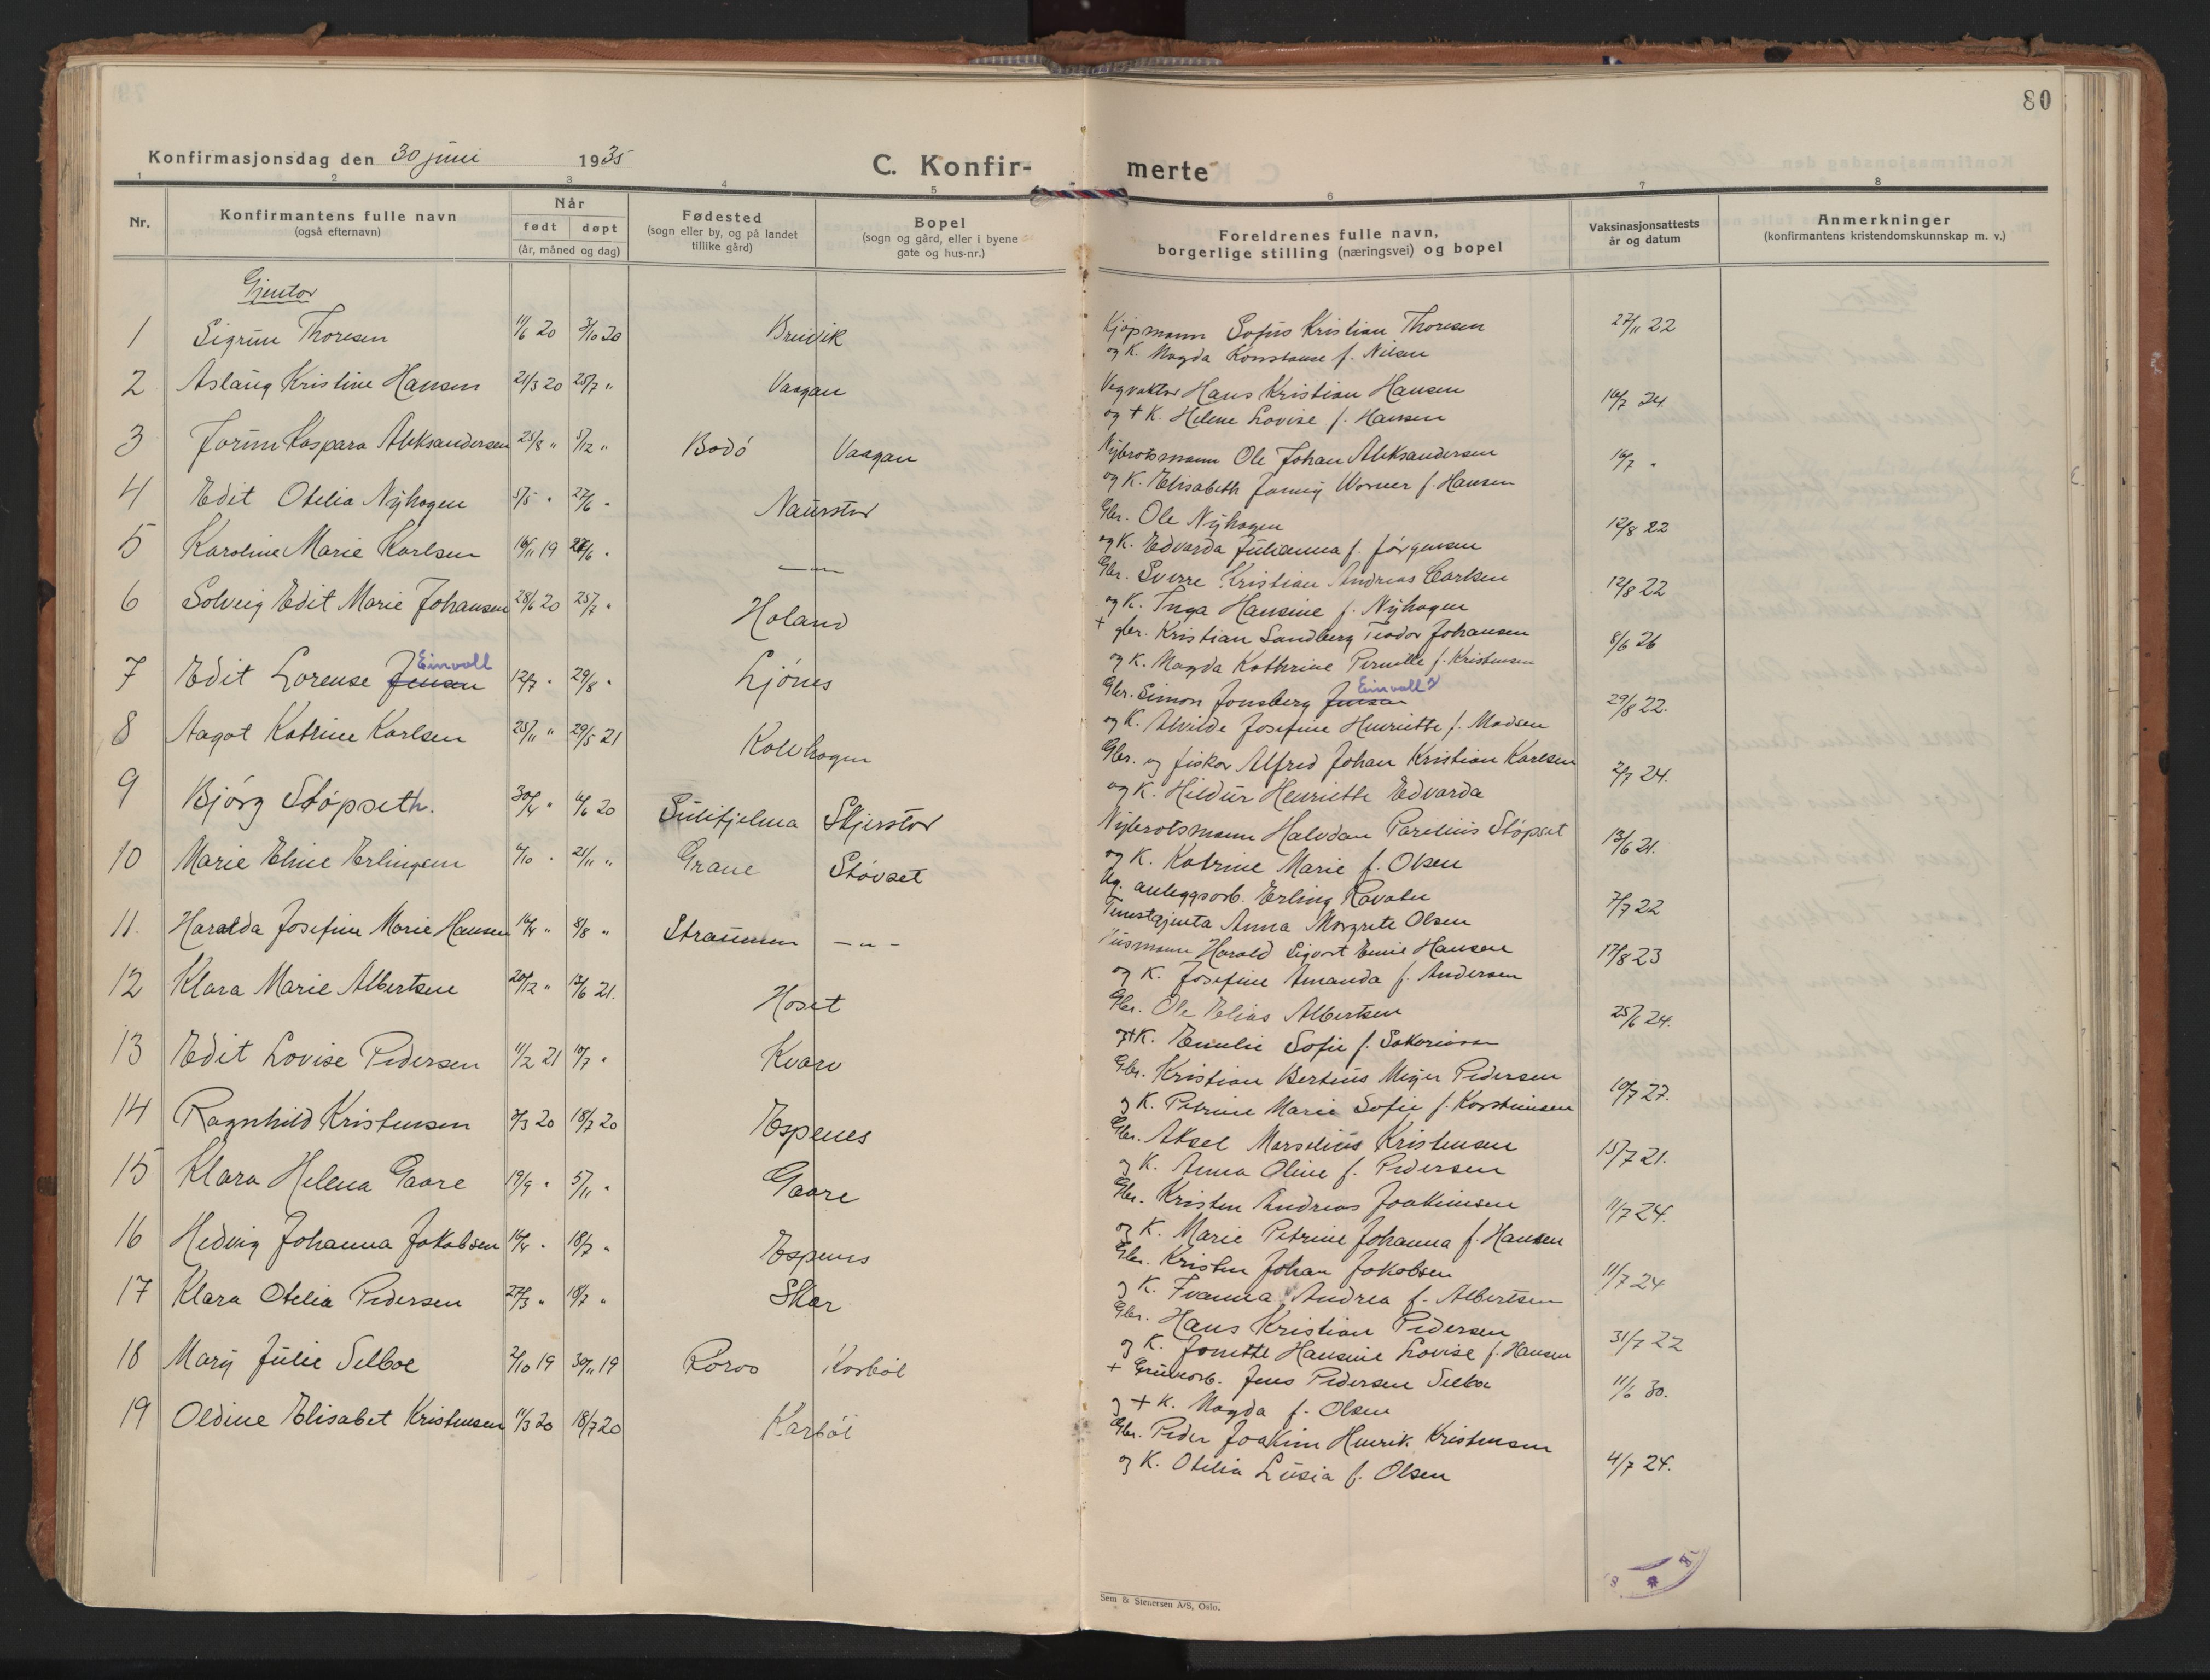 80
Konfirmasjonsdag den 30 juni 1935
C. Konfirmerte
1 2 3 4 5 6 7 8
Nr.
Konfirmantens fulle navn
(også efternavn)
Når
født døpt
(år, måned og dag)
Fødested
(sogn eller by, og på landet
tillike gård)
Bopel
(sogn og gård, eller i byene
gate og hus-nr.)
Foreldrenes fulle navn,
borgerlige stilling (næringsvei) og bopel
Vaksinasjonsattests
år og datum
Anmerkninger
(konfirmantens kristendomskunnskap m. v.)
Gjentor
1 Sigrun Thoresen 11/6 20 3/10 20 Breivik
Kjøpmann Sofus Kristian Thoresen 27/11 22
og K. Magda Konstanse f. Nilsen
2 Aslaug Kristine Hansen 21/3 20 25/7 " Vaagan
Vegvaktor Hans Kristian Hansen 16/7 24.
og + K. Helene Lovise f. Hansen
3 Jorun Kaspara Aleksandersen 25/8 " 5/12 " Bodö Vaagan
Nybrotsmann Ole Johan Aleksandersen 16/7 "
og K. Elisabeth Jonny Worner f. Hansen
4 Edit Otelia Nyhagen 5/5 " 27/6 " Naurstor
Gbr. Ole Nyhagen 12/8 22
og K. Edvarda Julianna f. Jørgensen
5 Karoline Marie Karlsen 16/11 19 27/6 " — " —
Gbr. Sverre Kristian Andreas Carlsen 12/8 22
og K. Inga Hansine f. Nyhagen
6 Solveig Edit Marie Johansen 28/6 20 25/7 " Holand
+ gbr. Kristian Sandberg Teodor Johansen 8/6 26
og K. Magda Kathrine Pernille f. Kristensen
7 Edit Lorense Jensen Einvoll 12/7 " 29/8 " Ljönes
Gbr. Simon Jonsberg Jensen Einvoll 29/8 22.
og K. Alvilde Josefine Henriette f. Madsen
8 Aagot Katrine Karlsen 25/11 " 29/5 21 Kolvhagen
Gbr. og fisker Alfred Johan Kristian Karlsen 2/7 24.
og K. Hildur Henriette Edvarda
9 Bjørg Støpseth. 30/4 " 6/6 20 Sulitjelma Skjerstor
Nybrotsmann Halvdan Parelius Støpset 13/6 21.
og K. Katrine Marie f. Olsen
10 Marie Eline Erlingsen 6/10 " 21/11 " Grane Støvset
Ug. anleggsarb. Erling Ravatn 7/7 22
Tenestgjenta Anna Margrete Olsen
11. Haralda Josefine Marie Hansen 16/4 " 8/8 " Straumen — " —
Harald Sigvart Emil Hansen 17/8 23
og K. Josefine Amanda f. Andersen
12 Klara Marie Albertsen 20/12 " 13/6 21. Hoset
Gbr. Ole Elias Albertsen 25/6 24.
og + K. Emelie Sofie f. Sakariassen
13 Edit Lovise Pedersen 11/2 21 10/7 " Kvarv
Gbr. Kristian Berteus Meyer Pedersen 10/7 27.
og K. Petrine Marie Sofie f. Karsteinsen
14 Ragnhild Kristensen 3/3 20 18/7 20 Espenes
Gbr. Aksel Marselius Kristensen 15/7 21.
og K. Anna Oline f. Pedersen
15 Klara Helena Gaare 19/9 " 5/11 " Gaare
Gbr. Kristen Andreas Joakimsen 11/7 24.
og K. Marie Petrine Johanna f. Hansen
16 Hedvig Johanna Jakobsen 16/4 " 18/7 " Espenes
Gbr. Kristen Johan Jakobsen 11/7 24
og K. Ivanna Andrea f. Albertsen
17 Klara Otelia Pedersen 27/3 " 18/7 " Skar
Gbr. Hans Kristian Pedersen 31/7 22
og K. Jonette Hansine Lovise f. Hansen
18 Mary Julie Selboe 2/10 19 30/11 19 Roros Karbøl
+ Gruvearb. Jens Pedersen Selboe 11/6 30.
og + K. Magda f. Olsen
19 Oldine Elisabet Kristensen 11/3 20 18/7 20 Karbøl
Gbr. Peder Joakim Henrik Kristensen 4/7 24.
og K. Otelia Lusia f. Olsen
Sem & Stenersen A/S, Oslo.